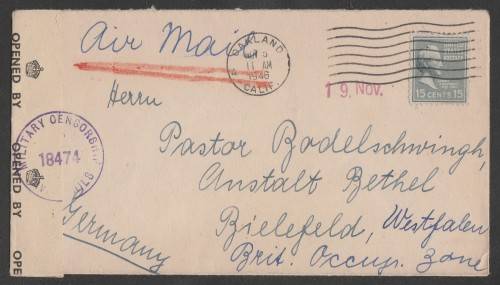 OPENED BY
OPENED BY
OPE
MILITARY CENSORSHIP
18474
Air Mail
OAKLAND
11 AM
1946
CALIF.
19. Nov.
15 CENTS 15
Herrn
Pastor Bodelschwingh,
Anstalt Bethel
Bielefeld, Westfalen
Brit. Occup. Zone
Germany